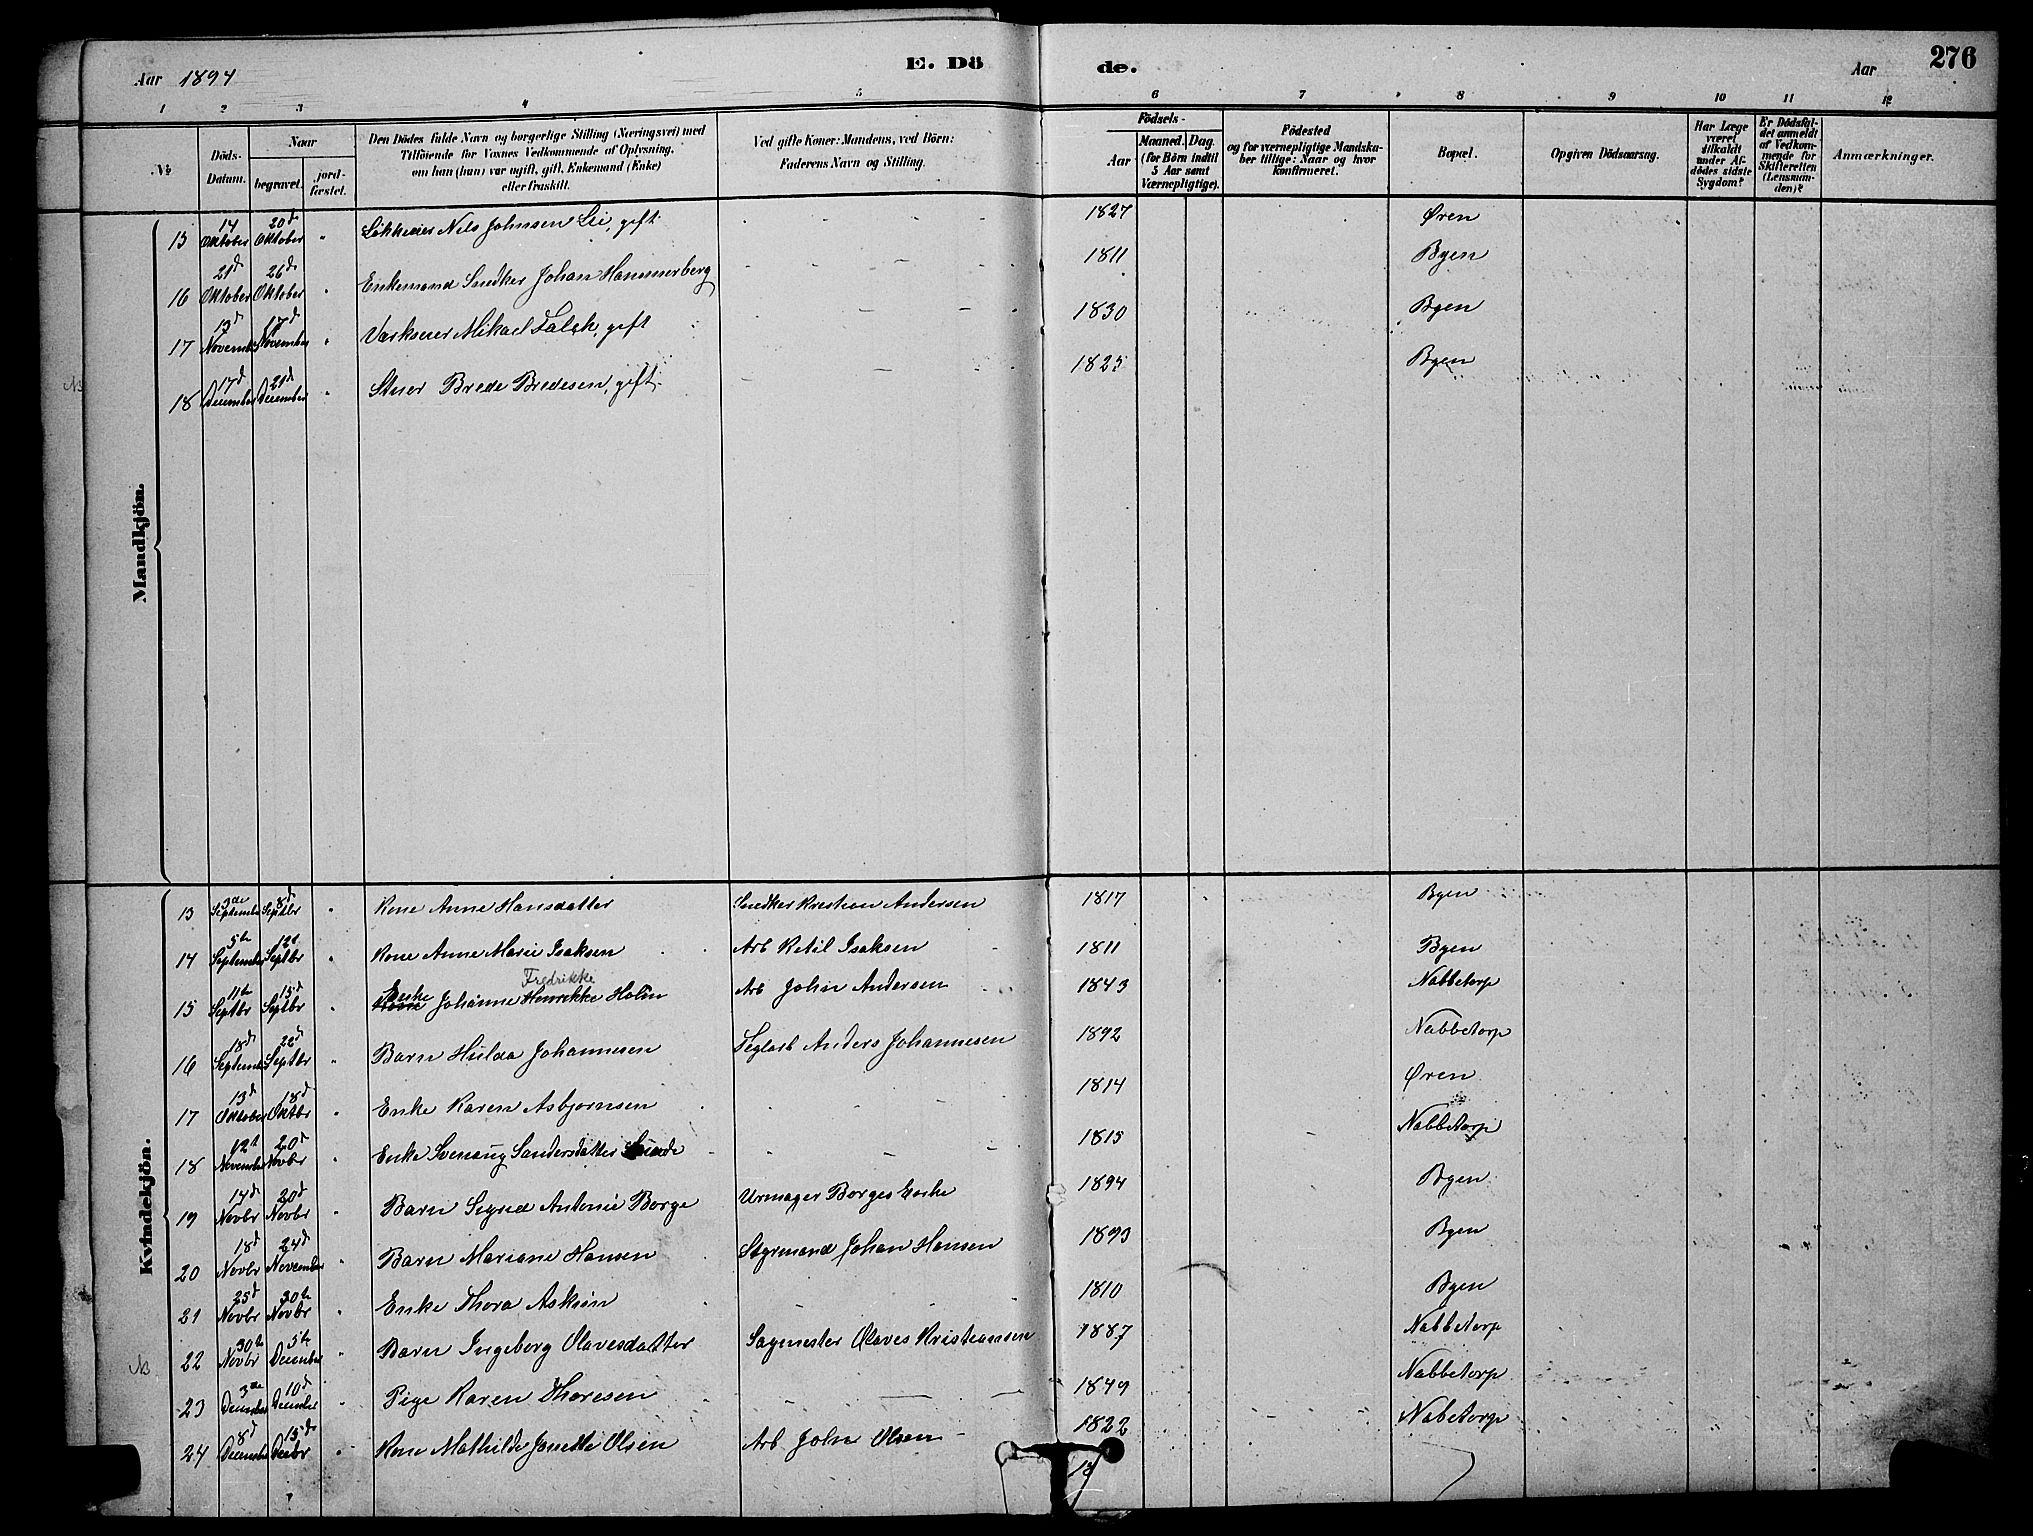 Aar 1894
E. Dö
de.
Aar
276
1 2 3 4 5 6 7 8 9 10 11 12
№
Döds-Datum.
Naar
begravet.
jord-fæstet.
Den Dödes fulde Navn og borgerlige Stilling (Næringsvei) med
Tilföiende for Voxnes Vedkommende af Oplysning,
om han (hun) var ugift, gift, Enkemand (Enke)
eller fraskilt.
Ved gifte Koner: Mandens, ved Börn:
Faderens Navn og Stilling.
Födsels-
Aar
Maaned. Dag.
(for Börn indtil
5 Aar samt
Værnepligtige).
Födested
og for værnepligtige Mandska-
ber tillige: Naar og hvor
konfirmeret.
Bopæl.
Opgiven Dödsaarsag.
Har Læge
været
tilkaldt
under Af-
dödes sidste
Sygdom?
Er Dödsfal-
det anmeldt
af Vedkom-
mende for
Skifteretten
(Lensman-
den)?
Anmærkninger.
Mandkjön.
15 14 Oktober 20d Oktober " Nils Johnsen Lie, gift 1827 Øren
16 21d Oktober 26d Oktober " Enkemand Snedker Johan Hammerberg 1811 Byen
17 13d November 17d November " Værkseier Mikael Falch, gift 1830 Byen
NB 18 17d December 21d December " Stuer Brede Bredesen, gift 1825 Byen
Kvindekjön.
13 3de September 8d Septbr " Kone Anne Hansdatter Snedker Kristian Andersen 1817 Byen
14 5te September 12t Septbr " Kone Anne Marie Isaksen Arb Ketil Isaksen 1811 Byen
Fredrikke
15 11te Septbr 15d Septbr " Enke Kone Johanne Henrikke Holm Arb John Andersen 1843 Nabbetorp
16 18d Septembr 22d Septbr " Barn Hulda Johannesen Teglarb Anders Johannesen 1892 Nabbetorp
17 13d Oktober 18d Oktbr " Enke Karen Asbjørnsen 1814 Øren
18 12t November 20d Novbr " Enke Svenaug Sandersdatter 1815 Nabbetorp
19 14d Novbr 20d Novbr " Barn Signe Antonie Borge Urmager Borges Enke 1894 Byen
20 18d Novbr 24d November " Barn Mariane Hansen Styrmand Johan Hansen 1893 Byen
21 25d Novbr 30te Novbr " Enke Thora Asksen 1810 Byen
NB 22 30te Novbr 5te December " Barn Ingeborg Olavesdatter Sagmester Olaves Kristiansen 1887 Nabbetorp
23 3de December 10d December " Pige Karen Thoresen 1849 Nabbetorp
24 8d December 15d Decbr " Kone Mathilde Jonette Olsen Arb John Olsen 1822 Nabetorp
18